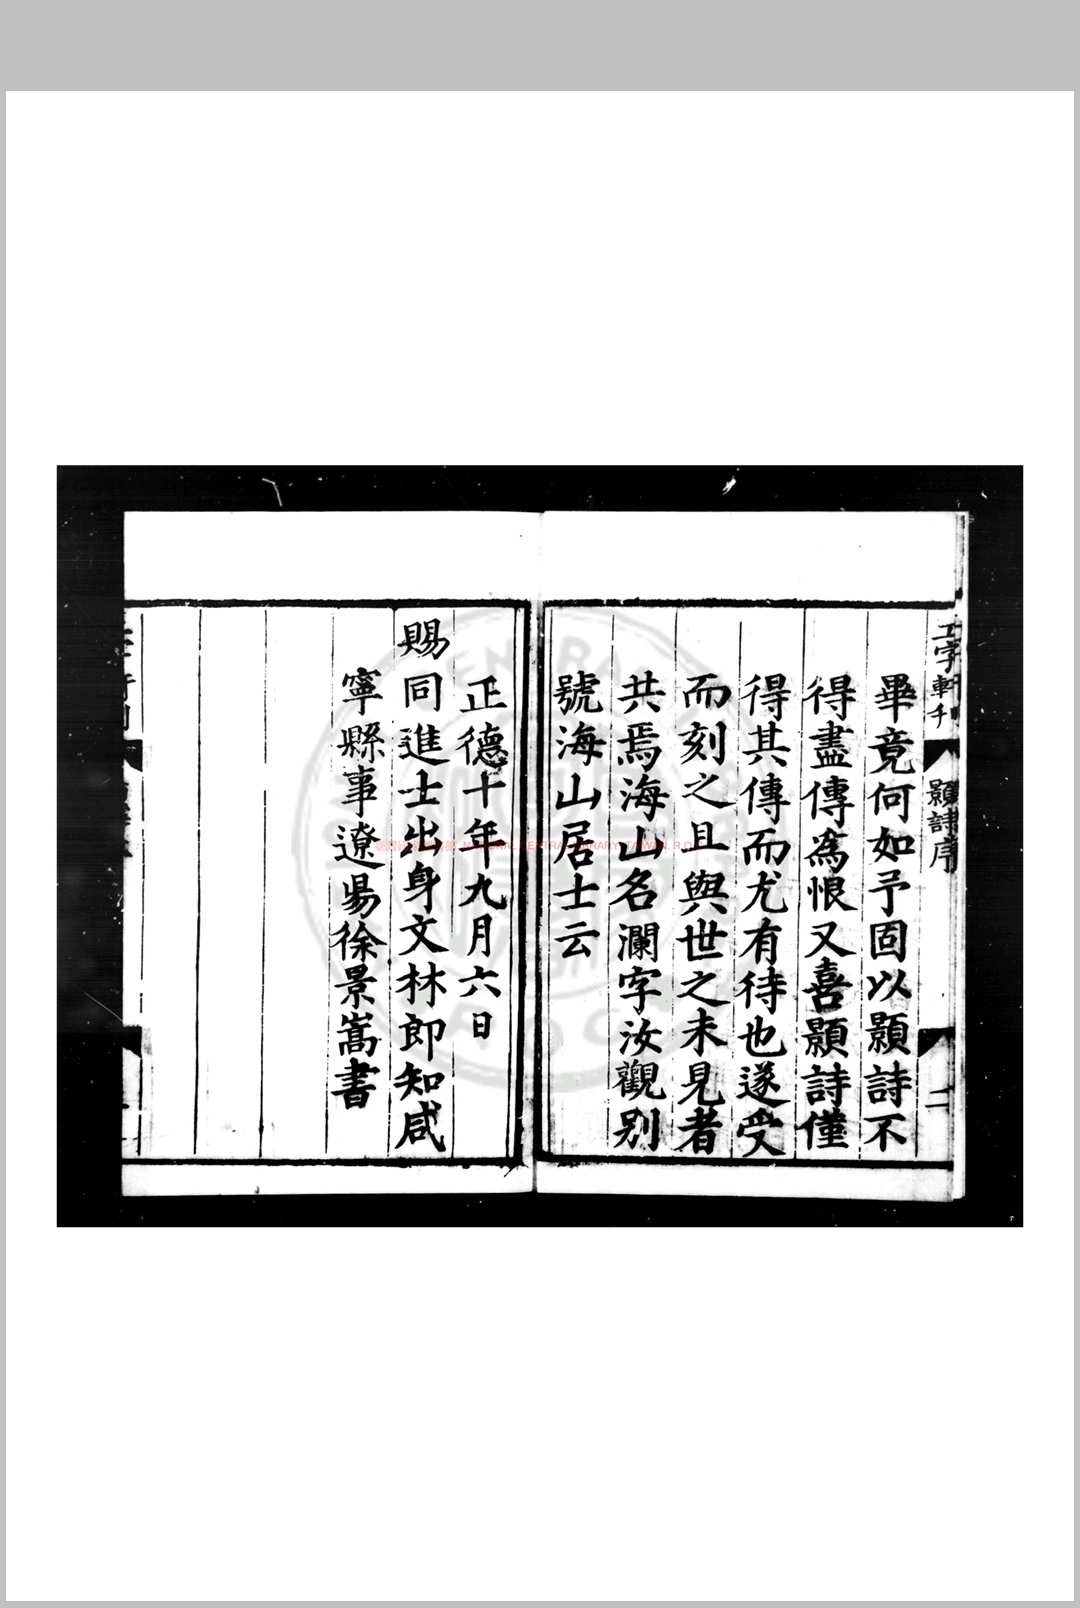 工字軒刊
顥詩序
二
畢竟何如予固以顥詩不
得盡傳為恨又喜顥詩僅
得其傳而尤有待也遂受
而刻之且與世之未見者
共焉海山名瀾字汝觀别
號海山居士云
正德十年九月六日
賜同進士出身文林郎知咸
寧縣事遼昜徐景嵩書
NATIONAL CENTRAL LIBRARY, TAIWAN, R.O.C